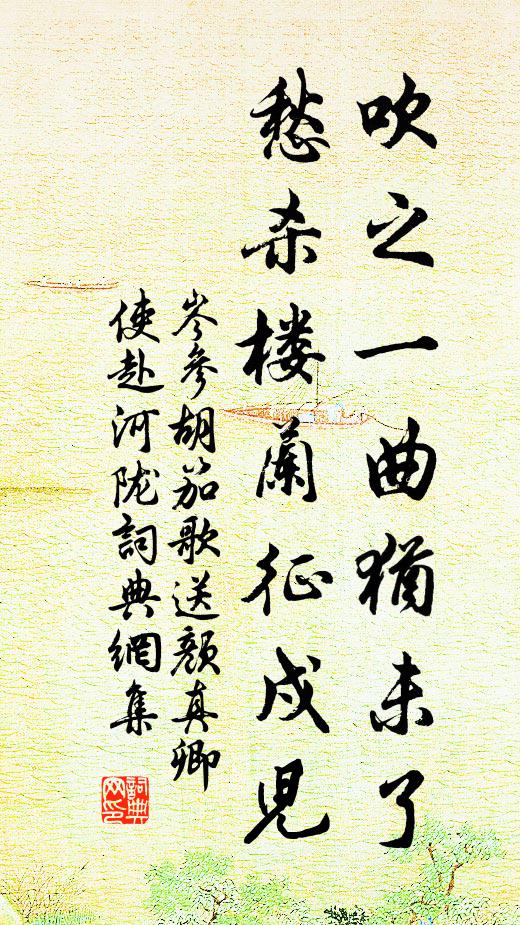 吹之一曲猶未了
愁杀楼蘭征戍児
岑參胡笳歌送顔真卿
使赴河陇詞典網集
詞典
网印